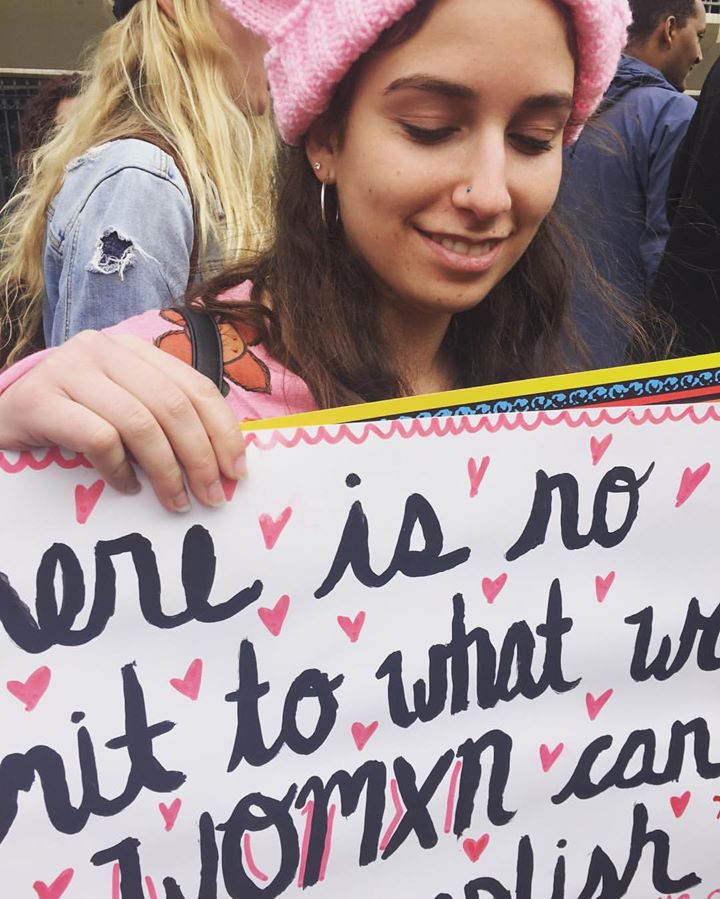 here is no
mit to what we
womxn can
plish